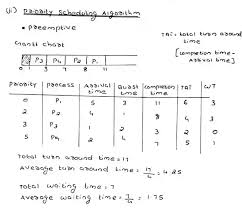 (ii) Priority Scheduling Algorithm
• Preemptive
Gantt chart
TAT= total turn around time
[completion time - Arrival time]
P3 P4 P2 P1
0 3 7 8 11
Priority Process Arrival time Burst time completion time TAT WT
1 P1 5 3 11 6 3
2 P2 4 1 8 4 3
3 P3 1 2 3 2 0
4 2 4 7 5 1
Total turn around time = 17
Average turn around time = 17/4 = 4.25
Total waiting time = 7
Average waiting time = 7/4 = 1.75